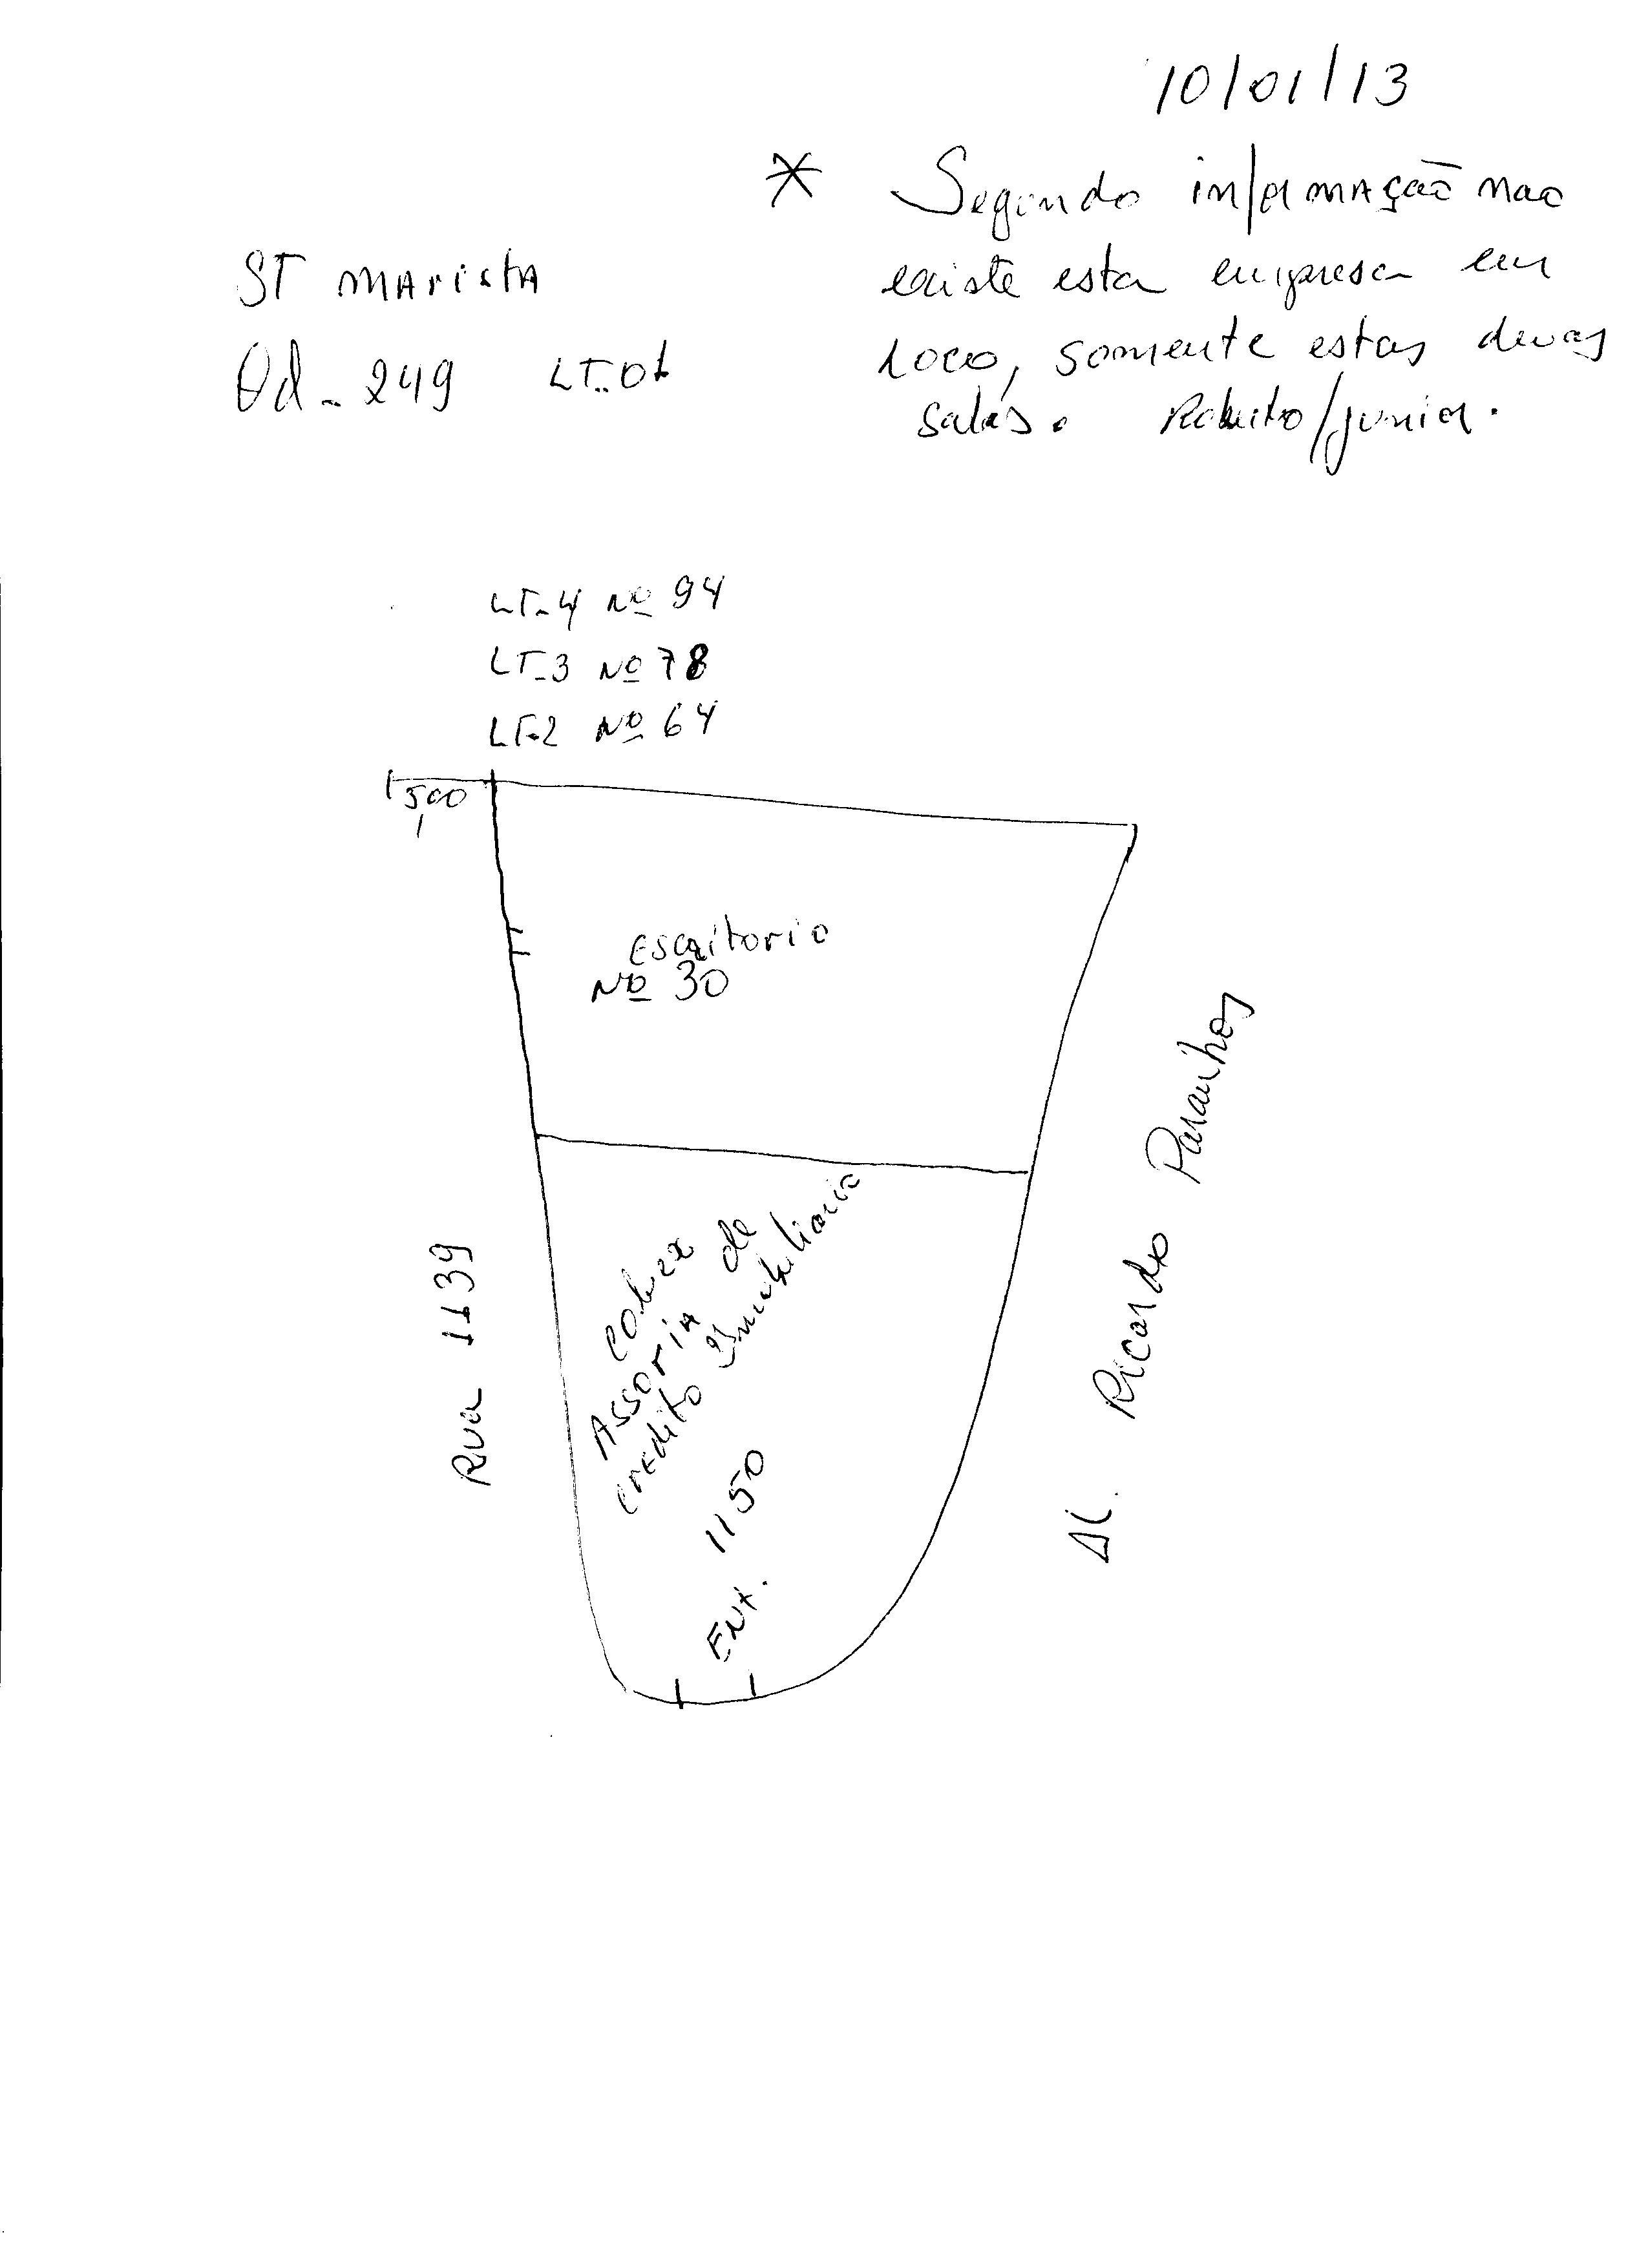 10/01/13
* Segundo informação nao
existe esta empresa em
loco, somente estas duas
salas. Roberto/junior.
ST MAristA
Qd - 249 LT-01
LT-4 Nº 94
LT-3 Nº 78
LT-2 Nº 64
5,00
Escritorio
Nº 30
cobex
Assoria de
credito Imobiliario
1150
Ent.
Rua 1139
Al. Ricardo Paranhos